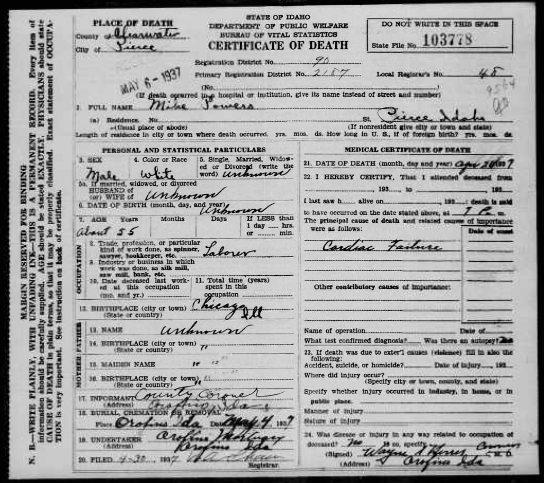 STATE OF IDAHO
DEPARTMENT OF PUBLIC WELFARE
BUREAU OF VITAL STATISTICS
CERTIFICATE OF DEATH
DO NOT WRITE IN THIS SPACE
State File No. 103778
PLACE OF DEATH
County Clearwater
City of Pierce
MAY 6-1937
Registration District No. 90
Primary Registration District No. 2187 Local Registrar's No. 48
(If death occurred in a hospital or institution, give its name instead of street and number)
1. FULL NAME Mike Powers
(a) Residence. No. St. Pierce Idaho
(Usual place of abode) (If nonresident give city or town and state)
Length of residence in city or town where death occurred. yrs. mos. ds. How long in U. S., if of foreign birth? yrs. mos. ds.
PERSONAL AND STATISTICAL PARTICULARS
3. SEX 4. Color or Race 5. Single, Married, Widowed or Divorced (write the word) Unknown
Male White
5a. If married, widowed, or divorced
HUSBAND OF
(or) WIFE OF Unknown
6. DATE OF BIRTH (month, day, and year) Unknown
7. AGE Years Months Days If LESS than
1 day hrs.
or min.
About 55
OCCUPATION
8. Trade, profession, or particular
kind of work done, as spinner,
sawyer, bookkeeper, etc. Laborer
9. Industry or business in which
work was done, as silk mill,
saw mill, bank, etc.
10. Date deceased last worked at this occupation (mo. and yr.)
11. Total time (years) spent in this occupation
12. BIRTHPLACE (City or town) Chicago
(State or country) Ill
FATHER
13. NAME Unknown
14. BIRTHPLACE (City or town) "
(State or country) "
MOTHER
15. MAIDEN NAME " "
16. BIRTHPLACE (City or town)
(State or country) "
17. INFORMANT County Coroner
(Address) Orofino Ida
18. BURIAL, CREMATION OR REMOVAL
Place Orofino Ida Date May 4 1937
19. UNDERTAKER Orofino
(Address) Orofino Ida
20. FILED 4-30, 1937
Registrar.
MEDICAL CERTIFICATE OF DEATH
21. DATE OF DEATH (month, day, and year)
22. I HEREBY CERTIFY, That I attended deceased from
193 to 193
I last saw h alive on 193 death is said
to have occurred on the date stated above, at m.
The principal cause of death and related causes of importance
were as follows: Date of onset
Cardiac Failure
Other contributory causes of importance:
Name of operation Date of
What test confirmed diagnosis? Was there an autopsy? No
23. If death was due to external causes (violence) fill in also the
following:
Accident, suicide, or homicide? Date of injury 193
Where did injury occur?
(Specify city or town, county, and state)
Specify whether injury occurred in industry, in home, or in
public place.
Manner of injury
Nature of injury
24. Was disease or injury in any way related to occupation of
deceased? No If so, specify Coroner
(Signed) Wayne M. D.
(Address) Orofino Ida
MARGIN RESERVED FOR BINDING
N. B.—WRITE PLAINLY, WITH UNFADING INK—THIS IS A PERMANENT RECORD. Every item of
information should be carefully supplied. AGE should be stated EXACTLY. PHYSICIANS should state
CAUSE OF DEATH in plain terms, so that it may be properly classified. Exact statement of OCCUPA-
TION is very important. See instruction on back of certificate.